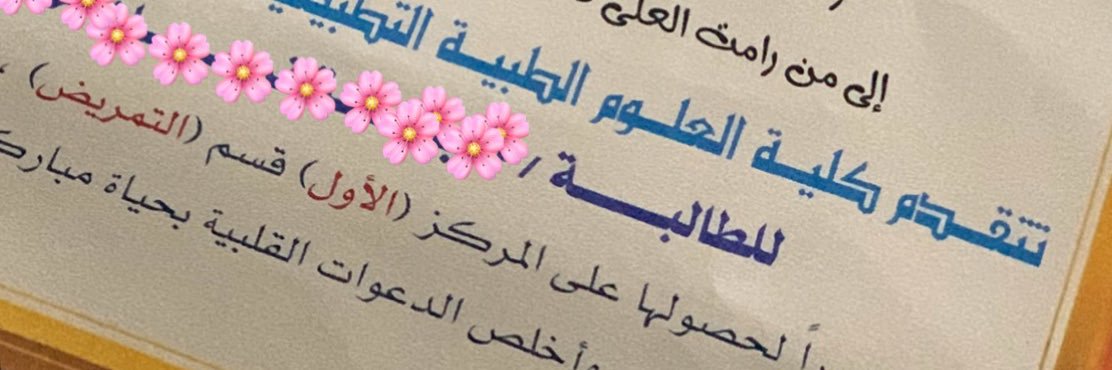 إلى من رامت العلى
تتقدم كلية العلوم الطبية التطبيقية
للطالبة /
لحصولها على المركز (الأول) قسم (التمريض) ،
وأخلص الدعوات القلبية بحياة مباركة